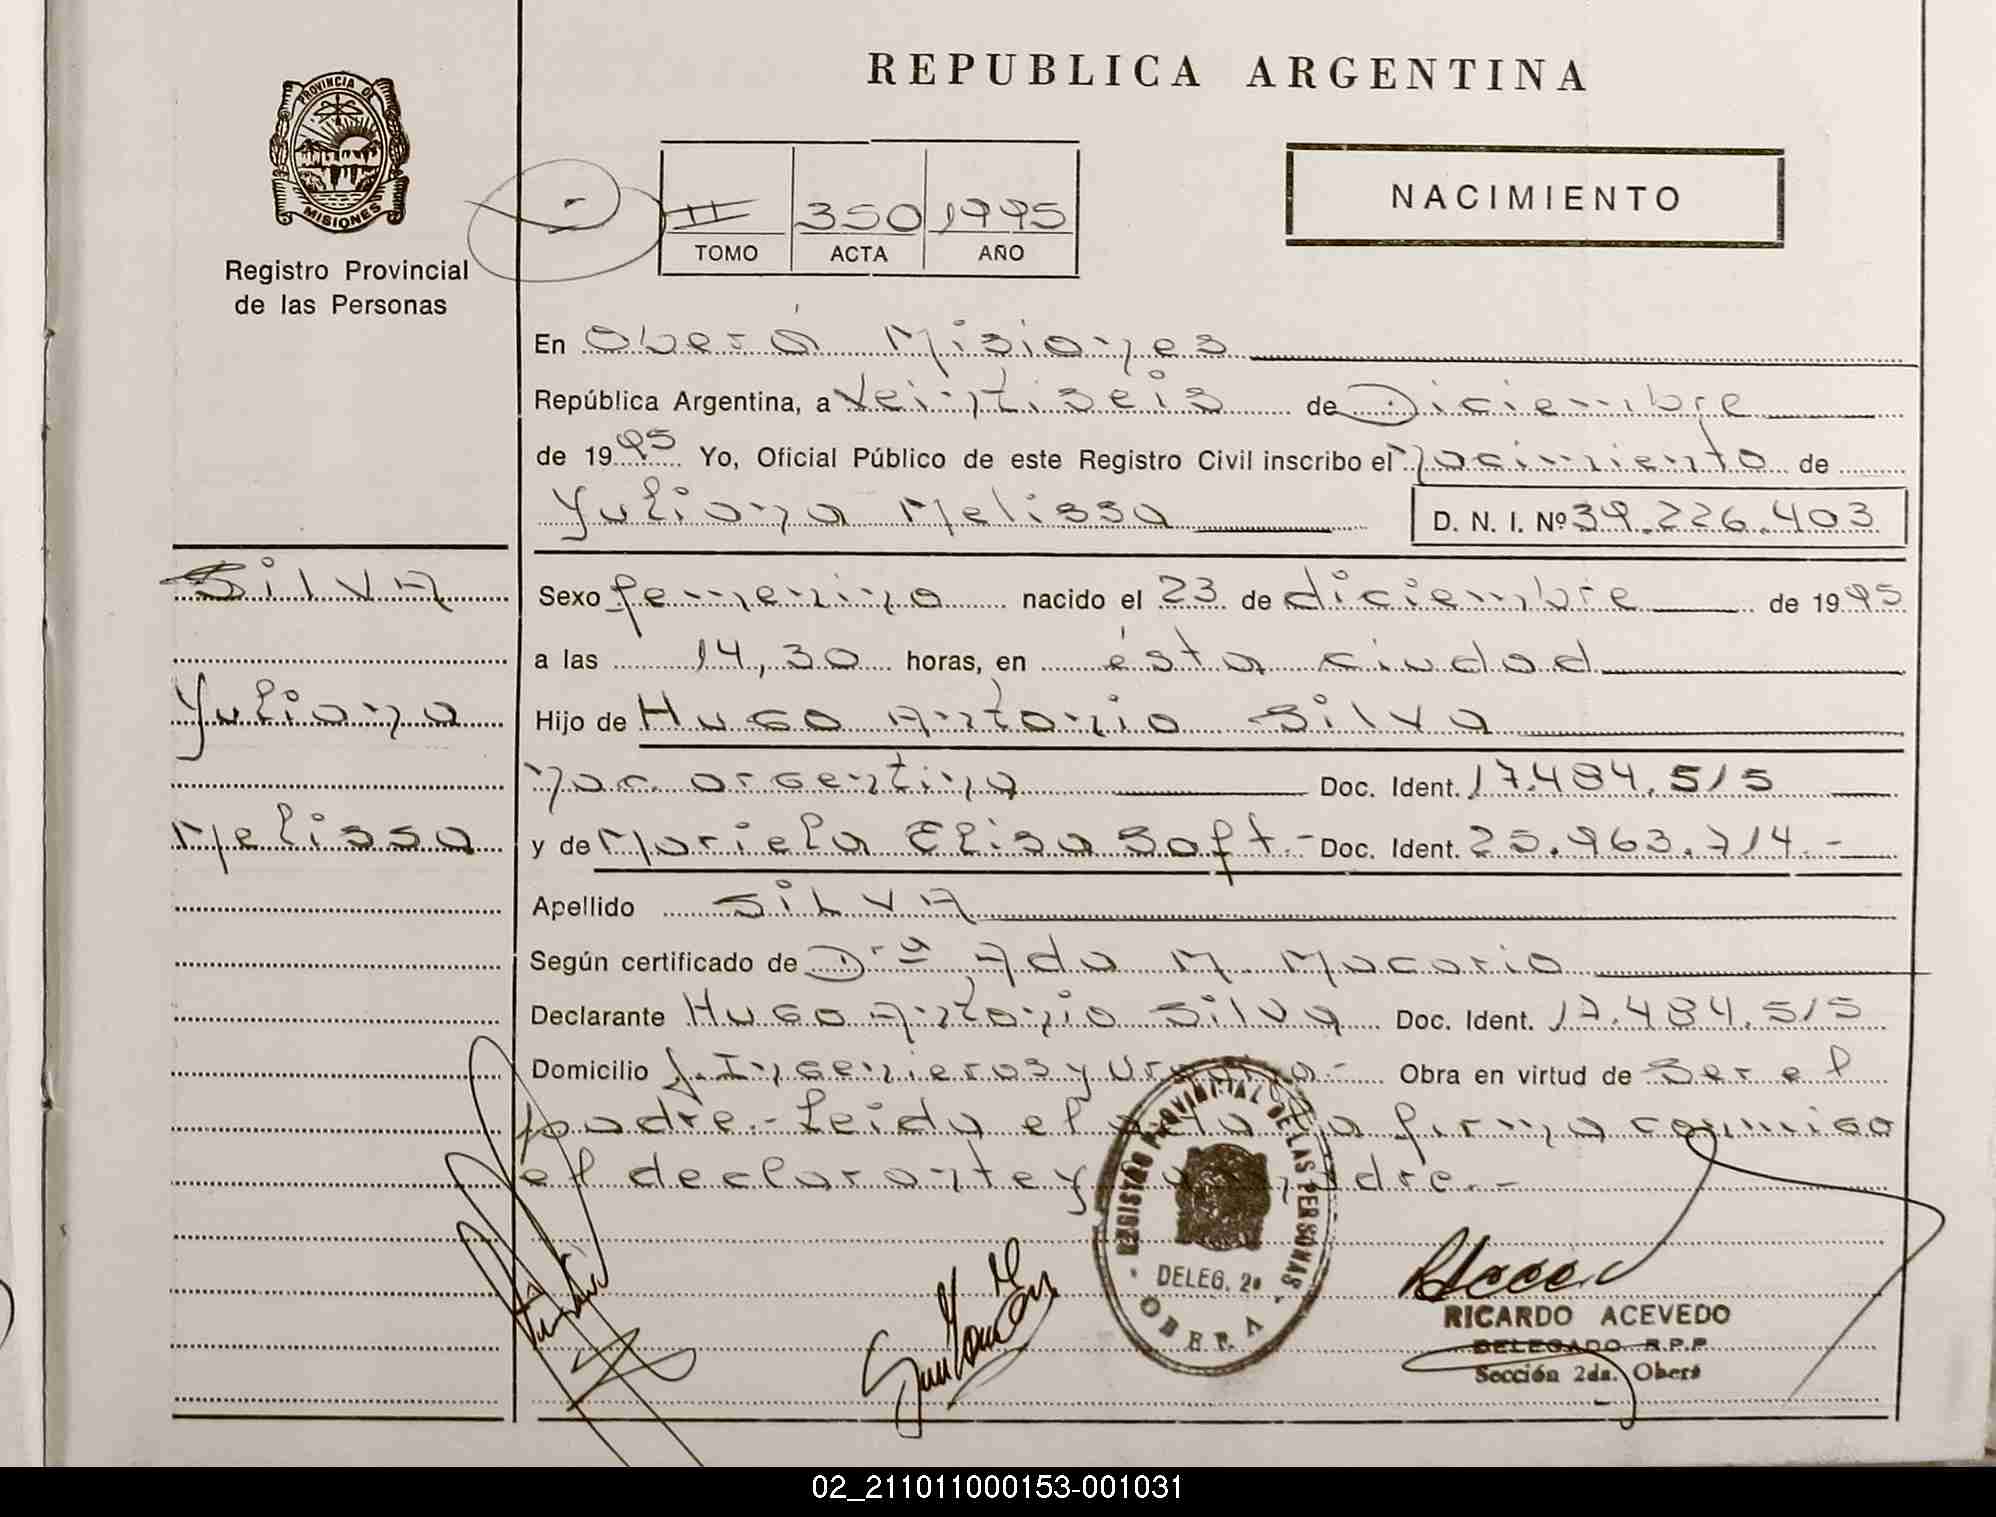 REPUBLICA ARGENTINA
PROVINCIA DE
MISIONES
Registro Provincial
de las Personas
II 350 1995
TOMO ACTA AÑO
NACIMIENTO
En Oberá Misiones
República Argentina, a Veintiseis de Diciembre
de 1995 Yo, Oficial Público de este Registro Civil inscribo el Nacimiento de
Yuliana Melissa D. N. I. Nº 39.226.403
SilVA
Yuliana
Melissa
Sexo femenino nacido el 23 de diciembre de 1995
a las 14,30 horas, en ésta ciudad
Hijo de Hugo Antonio Silva
nac. argentina Doc. Ident. 17.484.515
y de Mariela Elisa Soft.- Doc. Ident. 25.963.714.-
Apellido SiLVA
Según certificado de Drª Ada M. Macorio
Declarante Hugo Antonio Silva Doc. Ident. 17.484.515
Domicilio J. Ingenieros y Obra en virtud de Ser el
padre.- Leida el acta la firma conmigo
el declarante y madre.-
REGISTRO PROVINCIAL DE LAS PERSONAS
DELEG. 2ª
OBERA
RICARDO ACEVEDO
DELEGADO R.P.P
Sección 2da. Oberá
02_211011000153-001031